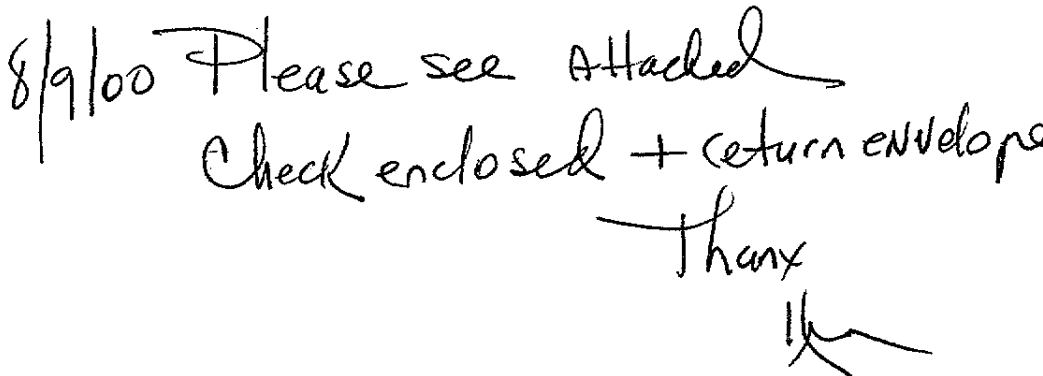 8/9/00 Please see Attached
Check enclosed + return envelope
Thanx